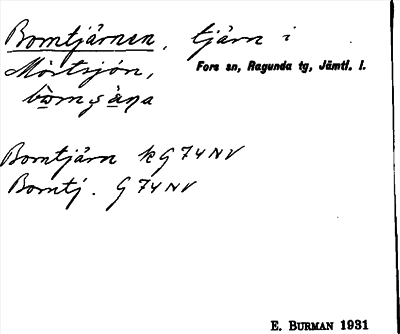 Bomtjärnen, tjärn i
Mörtsjön, Fors sn, Ragunda tg, Jämtl. l.
Bomtjärn kG74NV
Bomtj. G74NV
E. BURMAN 1931